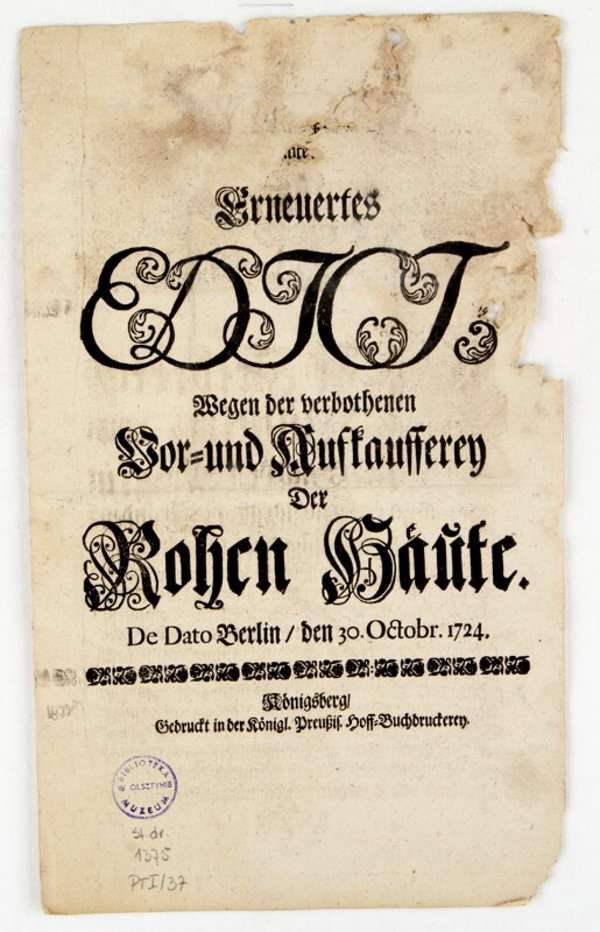 Erneuertes
EDICT,
Wegen der verbothenen
Vor=und Aufkaufferey
Der
Rohen Häute.
De Dato Berlin / den 30. Octobr. 1724.
Königsberg/
Gedruckt in der Königl. Preußis. Hoff-Buchdruckerey.
BIBLIOTEKA
MUZEUM
St. dr.
1375
PTI/37